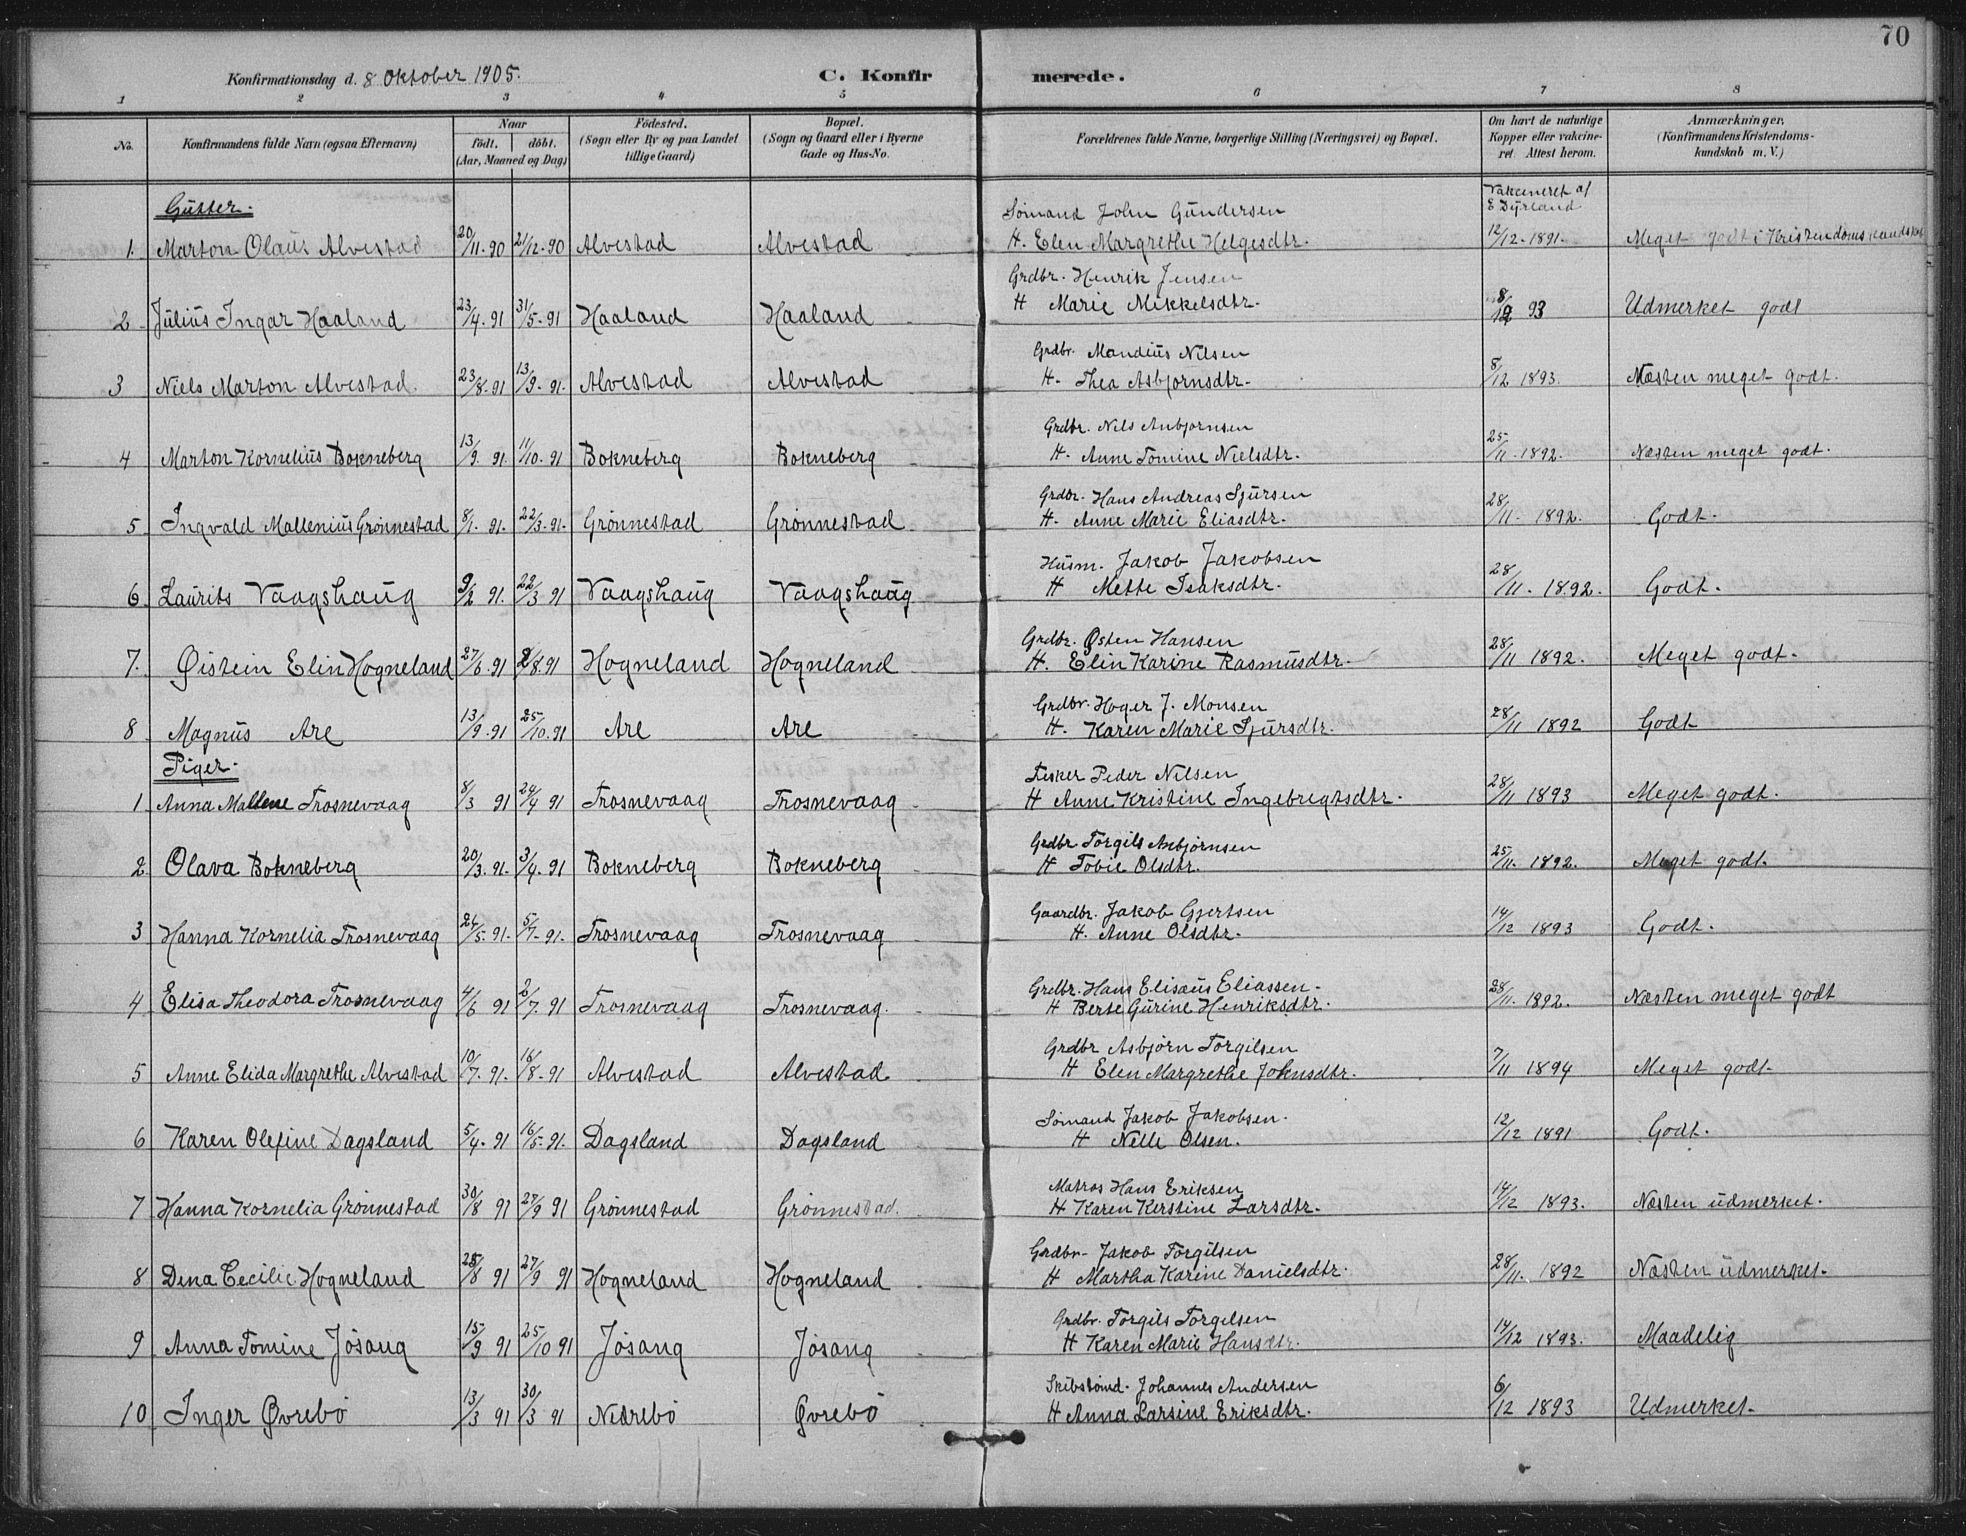 70
Konfirmationsdag d. 8 Oktober 1905. C. Konfir merede.
1 2 3 4 5 6 7 8
No. Konfirmandens fulde Navn (ogsaa Efternavn) Naar født. døbt. (Aar, Maaned og Dag) Fødested. (Sogn eller By og paa Landet tillige Gaard) Bopæl. (Sogn og Gaard eller i Byerne Gade og Hus-No. Forældrenes fulde Navne, borgerlige Stilling (Næringsvei) og Bopæl. Om havt de naturlige Kopper eller vakcineret. Attest herom. Anmærkninger. (Konfirmandens Kristendomskundskab m. V.)
Gutter. Vakcineret af E Dyrland
Sömand John Gundersen
1. Marton Olaus Alvestad 20/11-90 21/12-90 Alvestad Alvestad H. Elen Margrethe Helgesdtr. 12/12-1891. Meget godt i Kristendomskundskab
Grdbr. Henrik Jensen
2. Julius Ingar Haaland 23/4-91 31/5-91 Haaland Haaland H Marie Mikkelsdtr. 8/12 93 Udmerket godt
Grdbr. Mandius Nilsen
3 Niels Marton Alvestad. 23/8-91 13/9-91. Alvestad Alvestad H. Thea Asbjørnsdtr. 8/12 1893. Næsten meget godt.
Grdbr. Nils Anbjørnsen
4 Marton Kornelius Bokneberg 13/9. 91. 11/10-91 Bokneberg Bokneberg H. Anne Tomine Nielsdtr. 25/11-1892. Næsten meget godt.
Grdbr. Hans Andreas Sjursen
5. Ingvald Mallenius Grönnestad 8/1- 91. 22/3-91. Grönnestad Grönnestad H. Anne Marie Eliasdtr. 28/11-1892. Godt.
Husm. Jakob Jakobsen
6. Laurits Vaagshaug 9/2 91. 22/3 91 Vaagshaug Vaagshaug H Mette Isaksdtr. 28/11-1892. Godt.
Grdbr. Østen Hansen
7. Øistein Elin Hogneland 27/6-91 2/8.91 Hogneland Hogneland H. Elin Karine Rasmusdtr. 28/11 1892. Meget godt.
Grdbr. Hoger J. Monsen
8 Magnus Are 13/9.91 25/10.91 Are Are H. Karen Marie Sjursdtr. 28/11 1892 Godt
Piger.
Fisker Peder Nilsen
1 Anna Mallene Trosnevaag 8/3 91 24/4 91 Trosnevaag Trosnevaag H Anne Kristine Ingebregtsdtr. 28/11 1893 Meget godt.
Grdbr Torgils Asbjørnsen
2 Olava Bokneberg 20/3.91. 3/4.91 Bokneberg Bokneberg H Tobie Olsdtr. 25/11-1892. Meget godt.
Gaardbr. Jakob Gjertsen
3 Hanna Kornelia Trosnevaag 24/5.91. 5/7-91. Trosnevaag Trosnevaag H. Anne Olsdtr. 14/12 1893 Godt.
Grdbr. Hans Elisæus Eliassen
4 Elisa Theodora Trosnevaag 4/6 91 2/7. 91 Trosnevaag Trosnevaag. H Berte Gurine Henriksdtr. 28/11-1892. Næsten meget godt
Grdbr Asbjørn Torgilsen
5 Anne Elida Margrethe Alvestad 10/7. 91. 16/8-91 Alvestad Alvestad H Elen Margrethe Johnsdtr. 7/11 1894 Meget godt.
Sömand Jakob Jakobsen.
6 Karen Olefine Dagsland 5/4.91 16/5.91. Dagsland Dagsland H Nille Olsen. 12/12 1891 Godt.
Matros Hans Eriksen
7 Hanna Kornelia Grönnestad 30/8 91 27/9 91 Grönnestad Grönnestad. H Karen Kerstine Larsdtr. 14/12 1893. Næsten udmerket.
Grdbr. Jakob Torgilsen
8 Dina Cecilie Hogneland 25/8 91 27/9 91 Hogneland Hogneland H Martha Karine Danielsdtr. 28/11-1892 Næsten udmerket.
Grdbr. Torgils Torgilsen
9 Anna Tomine Jösang 15/9 91 25/10 91 Jösang Jösang H Karen Marie Hansdtr. 14/12 1893. Maadelig
Skibstömd. Johannes Andersen
10 Inger Øvrebö 13/3 91 30/3 91 Nedrebö Øvrebö H Anna Larsine Eriksdtr. 6/12 1893 Udmerket.